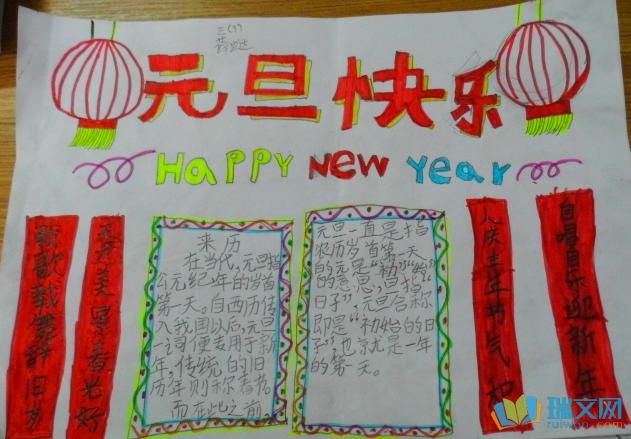 三(1)
元旦快乐
HAPPY NEW Year
载歌载舞辞旧岁
来历
在当代,元旦指
公元纪年的岁首
第一天。自西历传
入我国以后,元旦
一词便专用于新
年,传统的旧
历年则称春节。
而在此之前,
元旦一直是指
农历岁首第一天
的元是“初”“始”
的意思,旦指“
日子”,元旦合称
即是“初始的日
子”,也就是一年
的第一天。
人庆丰年节气和
自唱自乐迎新年
瑞文网
ruiwen.com